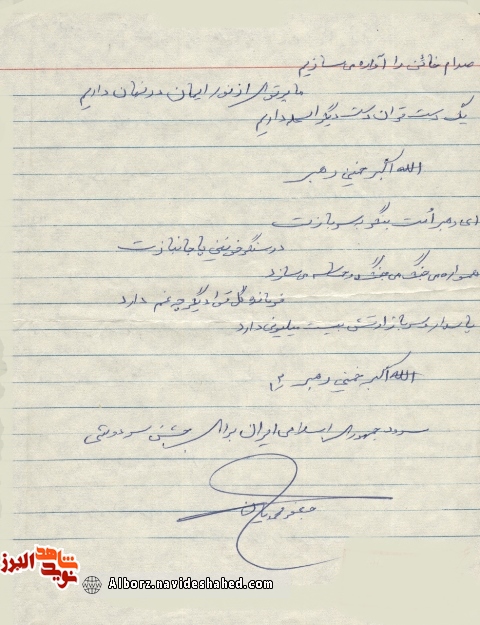 صدام خائن را آواره می‌سازیم
ما پرتوی از نور ایمان در نهان داریم
یک دست قرآن دست دیگر اسلحه داریم
الله اکبر خمینی رهبر
ای رهبر امت بنگر به سربازت
در سنگر خونین با جانبازت
همواره می‌جنگد می‌جنگد و حماسه می‌سازد
فرمانده کل قوا دیگر چه غم دارد
پاسدار و سرباز ارتش بیست میلیونی دارد
الله اکبر خمینی رهبر ۲
سرود جمهوری اسلامی ایران برای جشن سردوشی
جعفر محمدیان
شاهد
نوید
البرز
Alborz.navideshahed.com